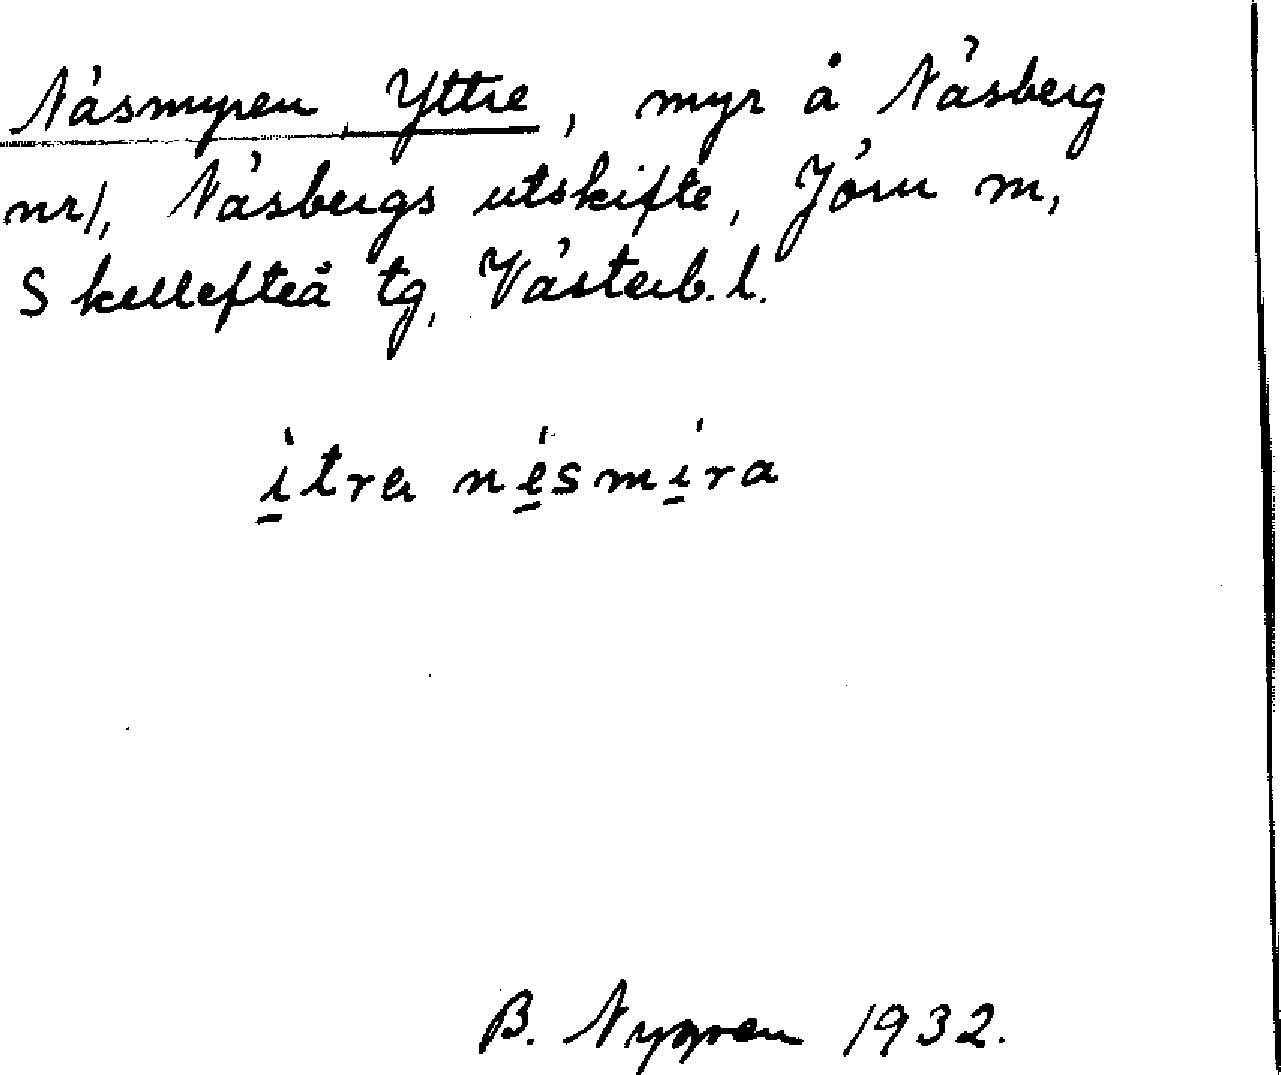 Näsmyren, Yttre, myr å Näsberg
nr 1, Näsbergs utskifte, Jörn m,
Skellefteå tg, Västerb. l.
itra nésmira
B. Nygren 1932.